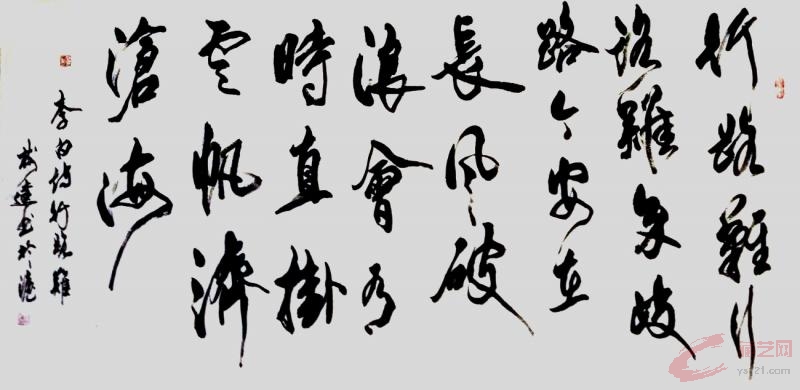 行路難行
路難多歧
路今安在
長風破
浪會有
時直掛
雲帆濟
滄海
李白詩行路難
達书於滬
艺网